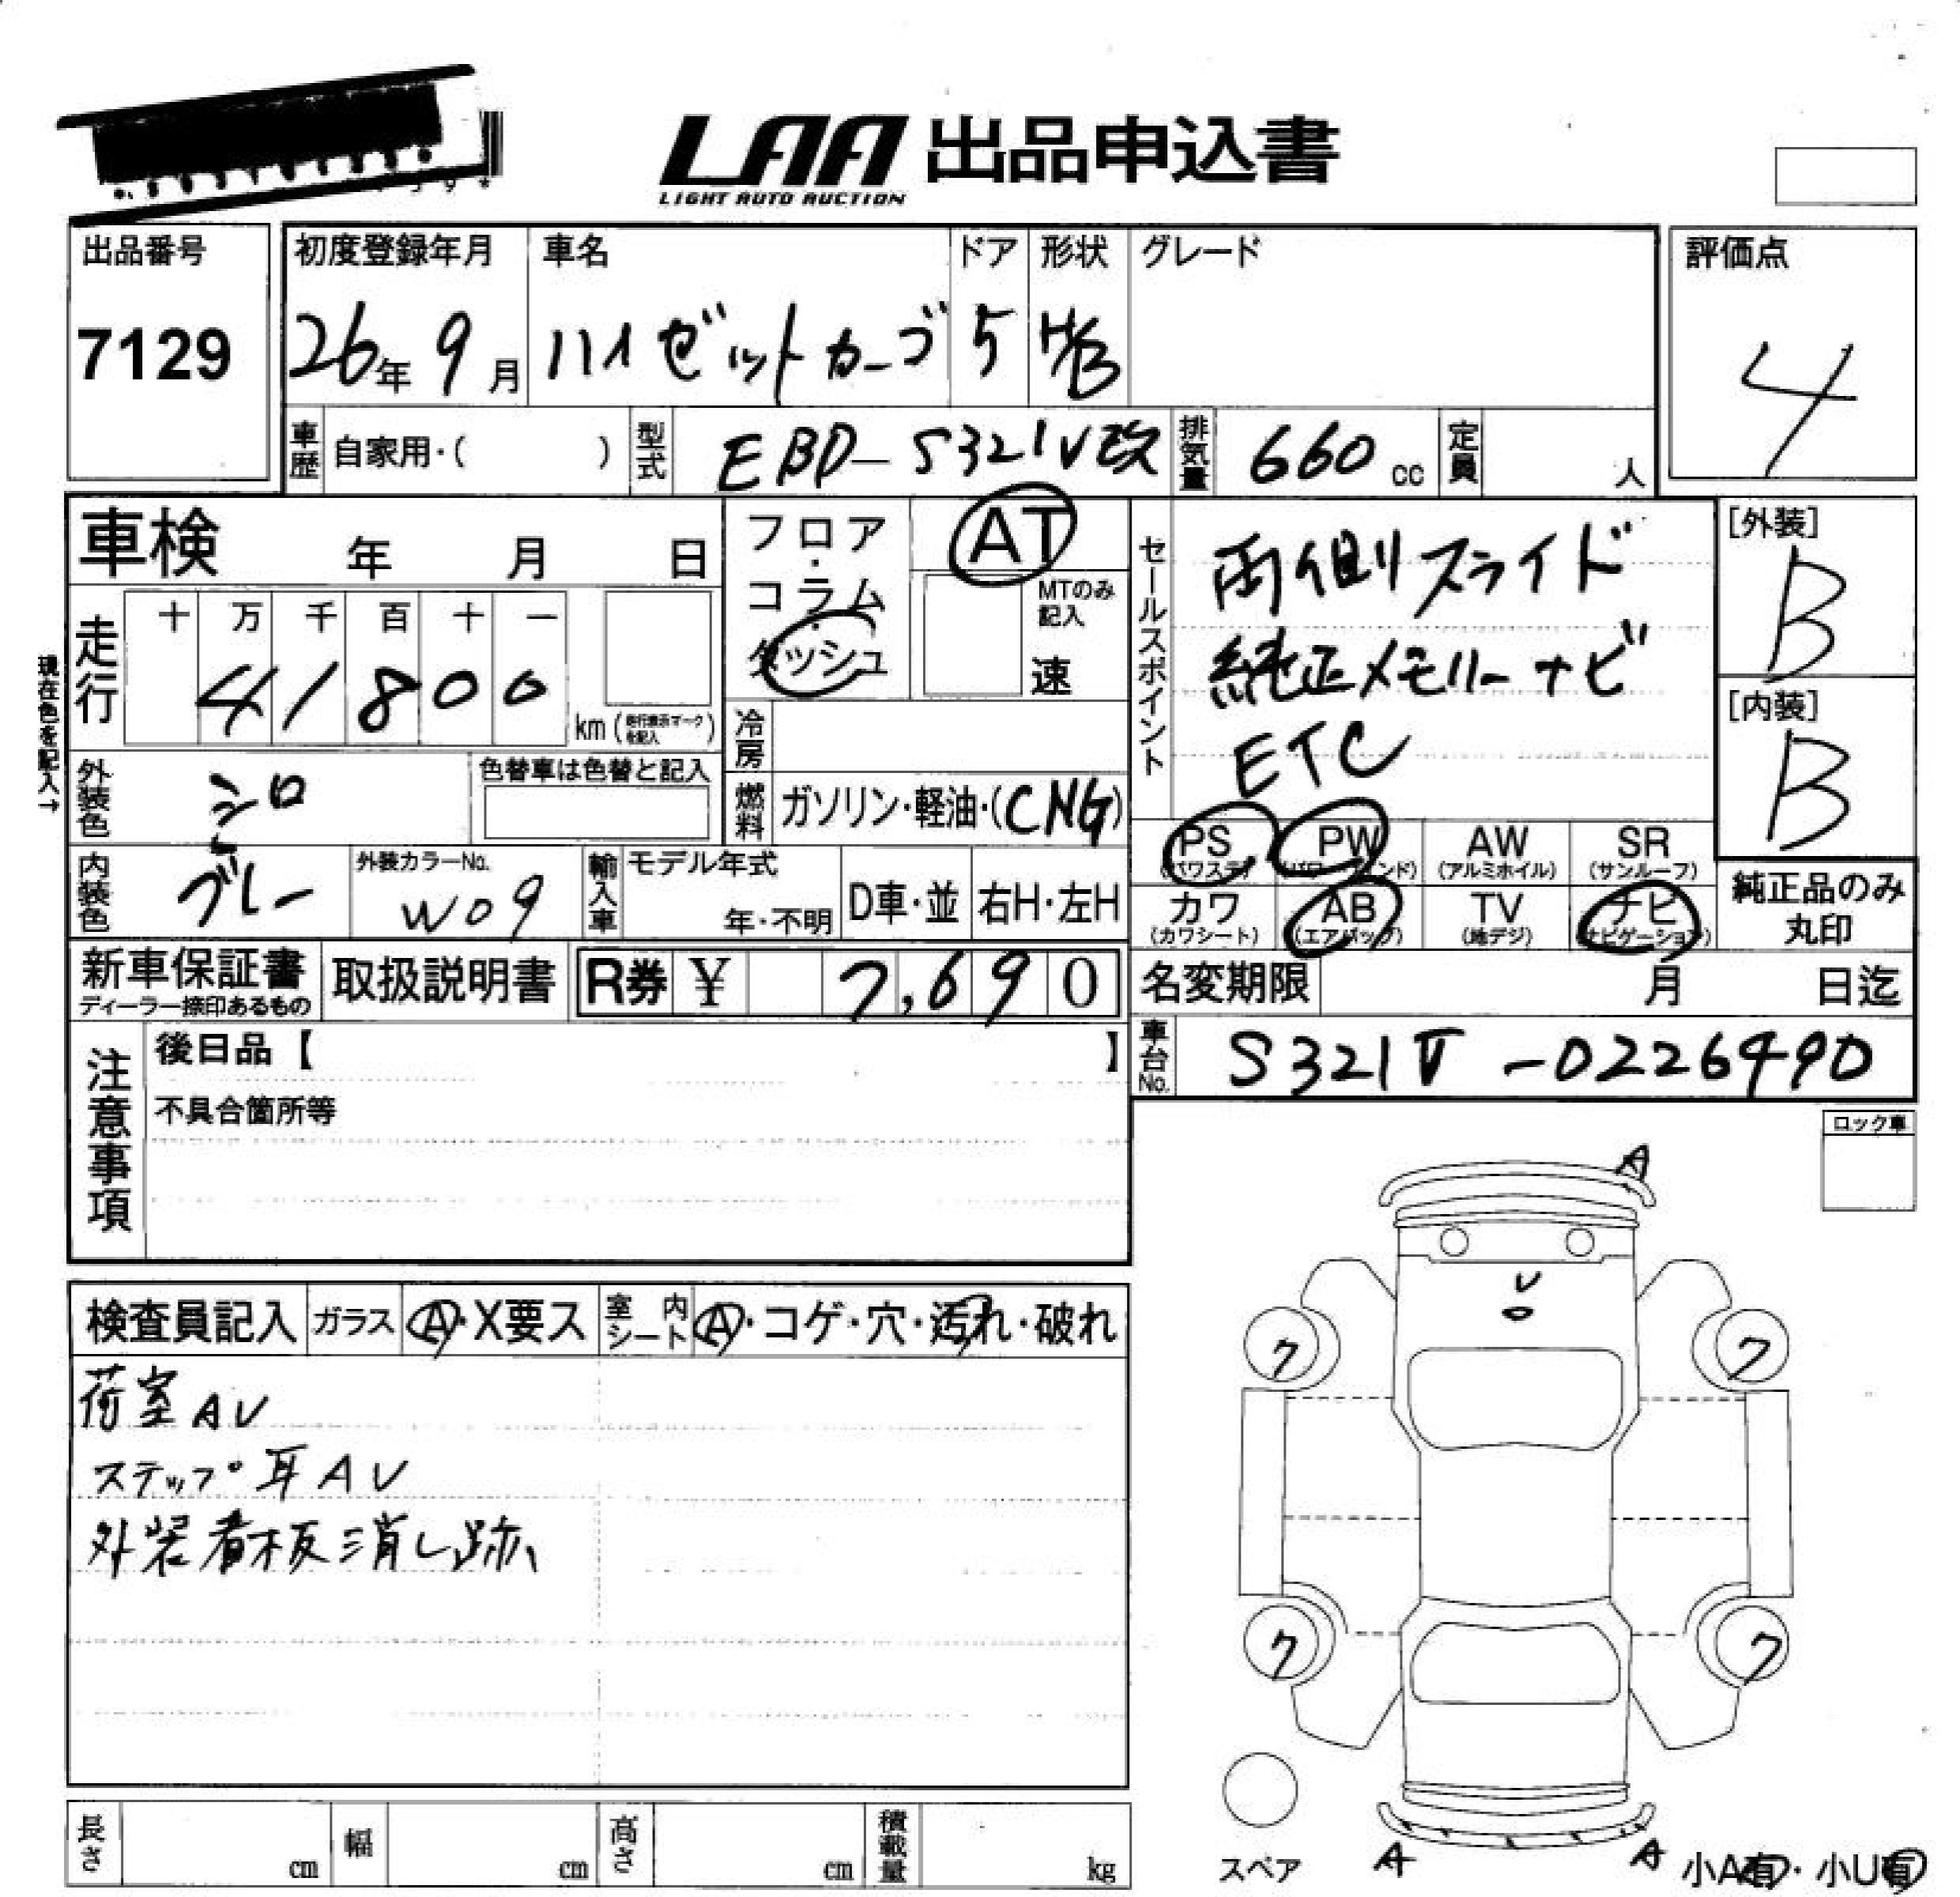 LAA 出品申込書
LIGHT AUTO AUCTION
出品番号
7129
初度登録年月 車名 ドア 形状 グレード
26年 9月 ハイゼットカーゴ 5 H/B
評価点
4
車歴 自家用・( ) 型式 EBD-S321V改 排気量 660cc 定員 人
車検 年 月 日
フロア・コラム・ダッシュ
AT
MTのみ記入
速
走行
十 万 千 百 十 一
41800
km (走行表示マークを記入)
現在色を記入→
冷房
外装色 シロ
色替車は色替と記入
燃料 ガソリン・軽油・(CNG)
内装色 グレー
外装カラーNo.
W09
輸入車 モデル年式
年・不明 D車・並 右H・左H
セールスポイント
両側スライド
純正メモリーナビ
ETC
[外装]
B
[内装]
B
PS PW AW SR
(パワステ) (パワーウインド) (アルミホイル) (サンルーフ)
カワ AB TV ナビ
(カワシート) (エアバッグ) (地デジ) (ナビゲーション)
純正品のみ
丸印
新車保証書
ディーラー捺印あるもの
取扱説明書
R券 ¥ 7,690
名変期限 月 日迄
車台No. S321V-0226490
注意事項
後日品【 】
不具合箇所等
ロック車
検査員記入 ガラス A・X要ス 室内シート A・コゲ・穴・汚れ・破れ
荷室AV
ステップ耳AV
外装看板消し跡
A
U
ク ク
ク ク
スペア A A 小A有・小U有
長さ cm 幅 cm 高さ cm 積載量 kg